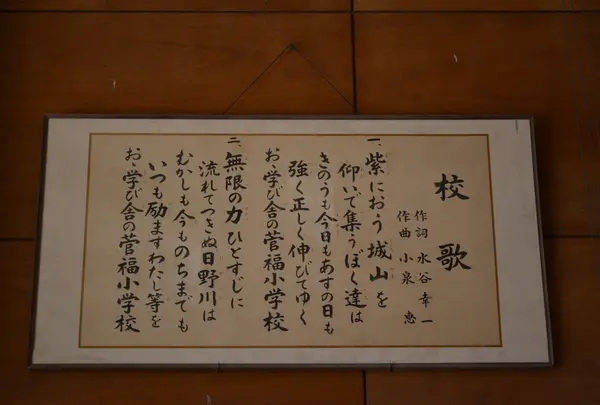 校歌
作詞 水谷幸一
作曲 小泉 恵
一、紫におう城山を
仰いで集うぼく達は
きのうも今日もあすの日も
強く正しく伸びてゆく
おゝ学び舎の菅福小学校
二、無限の力ひとすじに
流れてつきぬ日野川は
むかしも今ものちまでも
いつも励ますわたし等を
おゝ学び舎の菅福小学校